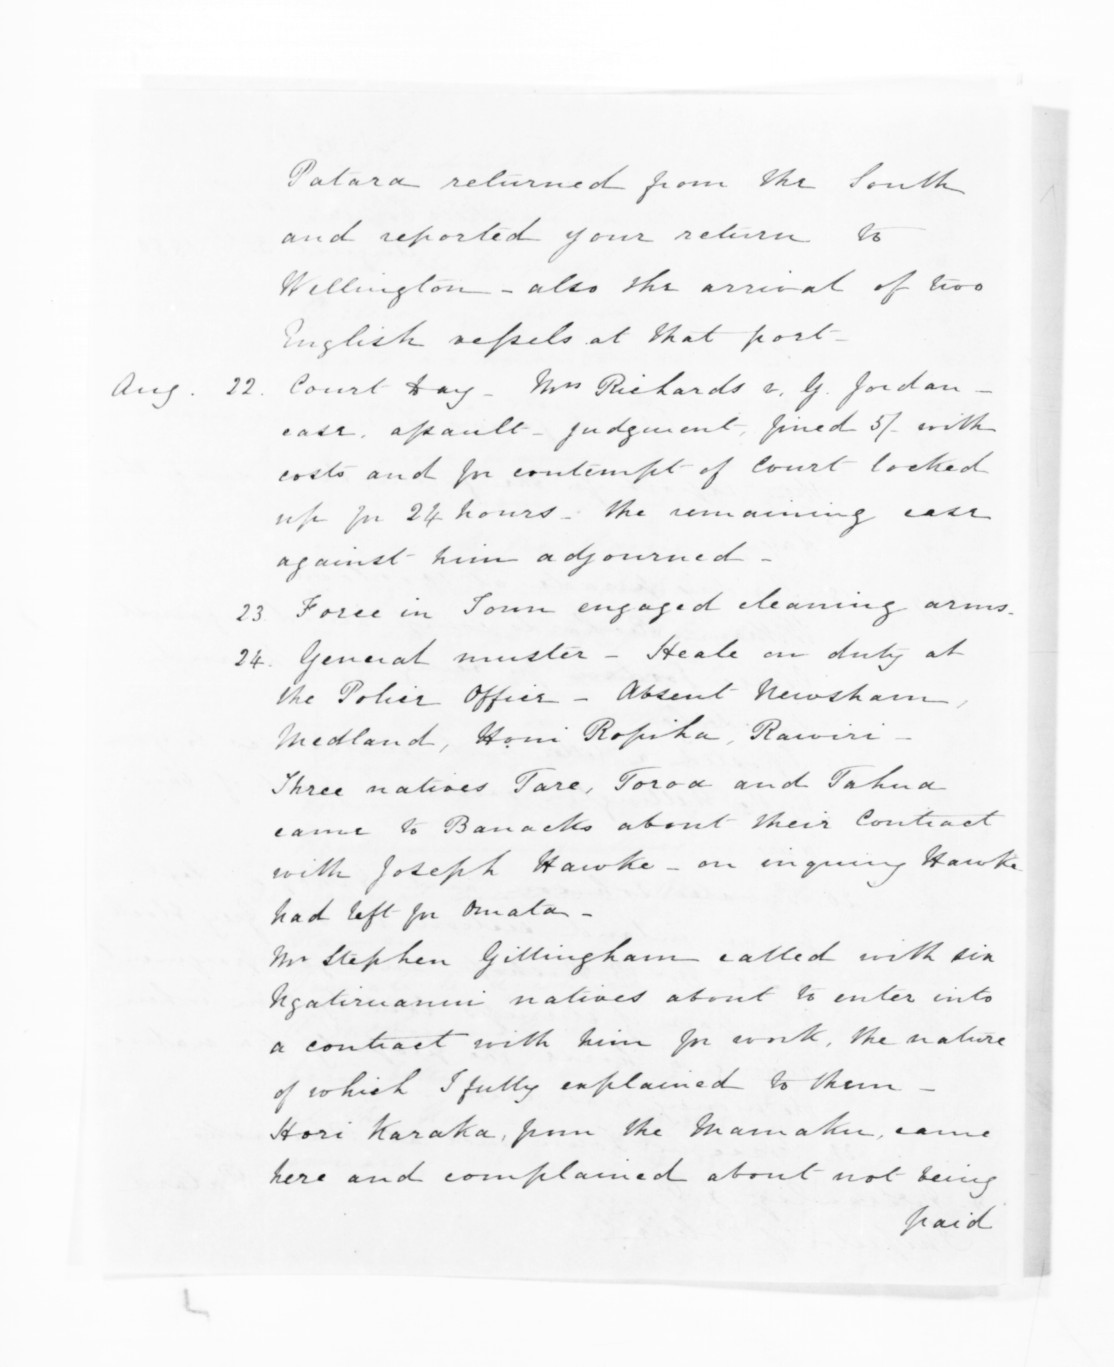 Patara returned from the South
and reported your return to
Wellington - also the arrival of two
English vessels at that port -
Aug. 22. Court Day - Mrs Richards v. G. Jordan -
case, assault - judgment, fined 5/- with
costs and for contempt of Court locked
up for 24 hours - the remaining case
against him adjourned -
23. Force in Town engaged cleaning arms.
24. General muster - Heale on duty at
the Police Office - Absent Newsham,
Medland, Honi Ropiha, Rawiri -
Three natives Tare, Toroa and Tahua
came to Barracks about their Contract
with Joseph Hawke - on inquiry Hawke
had left for Omata -
Mr Stephen Gillingham called with six
Ngatiruanui natives about to enter into
a contract with him for work, the nature
of which I fully explained to them -
Hori Karaka, from the Mamaku, came
here and complained about not being
paid